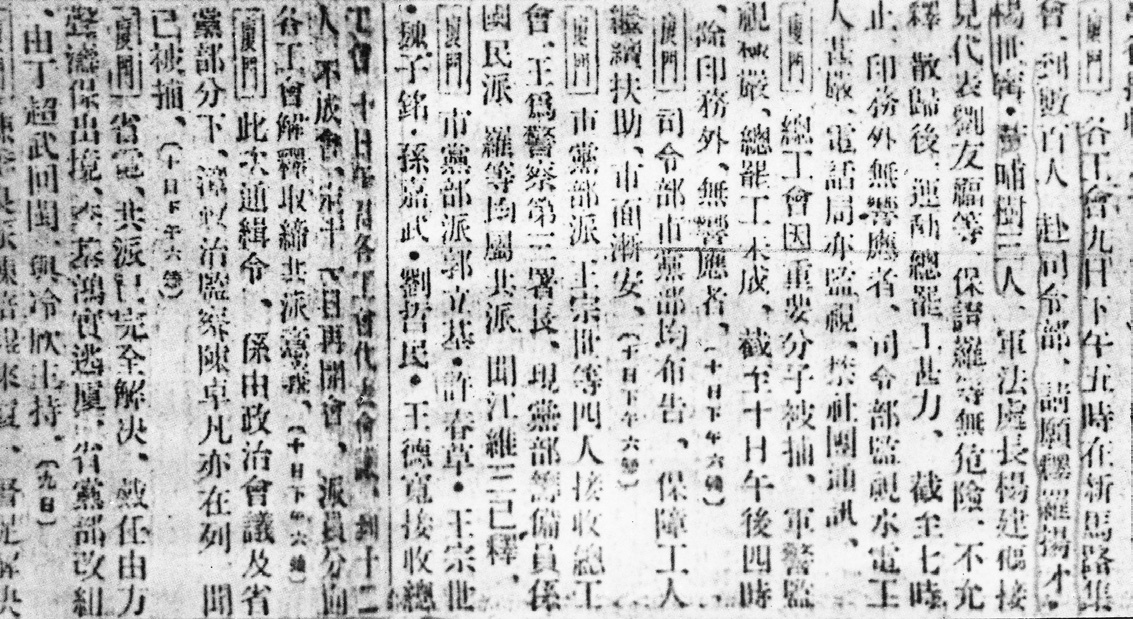 廈門 各工會九日下午五時在新馬路集
會、到數百人 赴司令部、請願釋羅揚才、
楊世寧・黃埔樹三人 軍法處長楊建礎接
見代表劉友福等 保證羅等無危險、不允
釋 散歸後 運動總罷工甚力、截至七時
止、印務外無響應者、司令部監視水電工
人甚嚴、電話局亦監視、禁社團通訊、
廈門 總工會因重要分子被捕、軍警監
視極嚴、總罷工未成、截至十日午後四時
、除印務外、無響應者、(十日下午六鐘)
廈門 司令部市黨部均布告、保障工人
繼續扶助、市面漸安、(十日下午六鐘)
廈門 市黨部派 王宗世等四人接收總工
會、王爲警察第三署長、現黨部籌備員係
國民派 羅等均屬共派 聞江維三已釋、
廈門 市黨部派郭立基・許春草・王宗世
・魏子銘・孫嘉武・劉哲民・王德寬接收總
工會 十日午 各工會代表會議、到十二
人 不成會、定十 日再開會、派員分向
各工會解釋取締共派意義、(十日下午六鐘)
廈門 此次通緝令、係由政治會議及省
黨部分下、 政治監察陳卓凡亦在列 聞
已被捕、(十日下午六鐘)
廈門 省電、共派已完全解決、戴任由方
聲濤保出境、李基鴻實逃廈、省黨部改組
、由丁超武回閩、與冷欣主持、(九日)